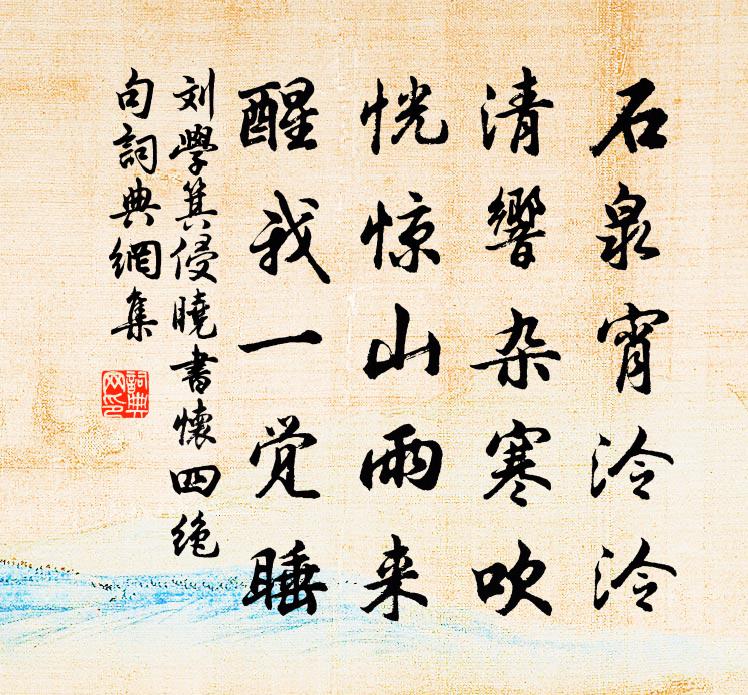 石泉宵泠泠
清響杂寒吹
恍惊山雨来
醒我一觉睡
刘學箕侵曉書懷四绝
句詞典網集
詞典网印